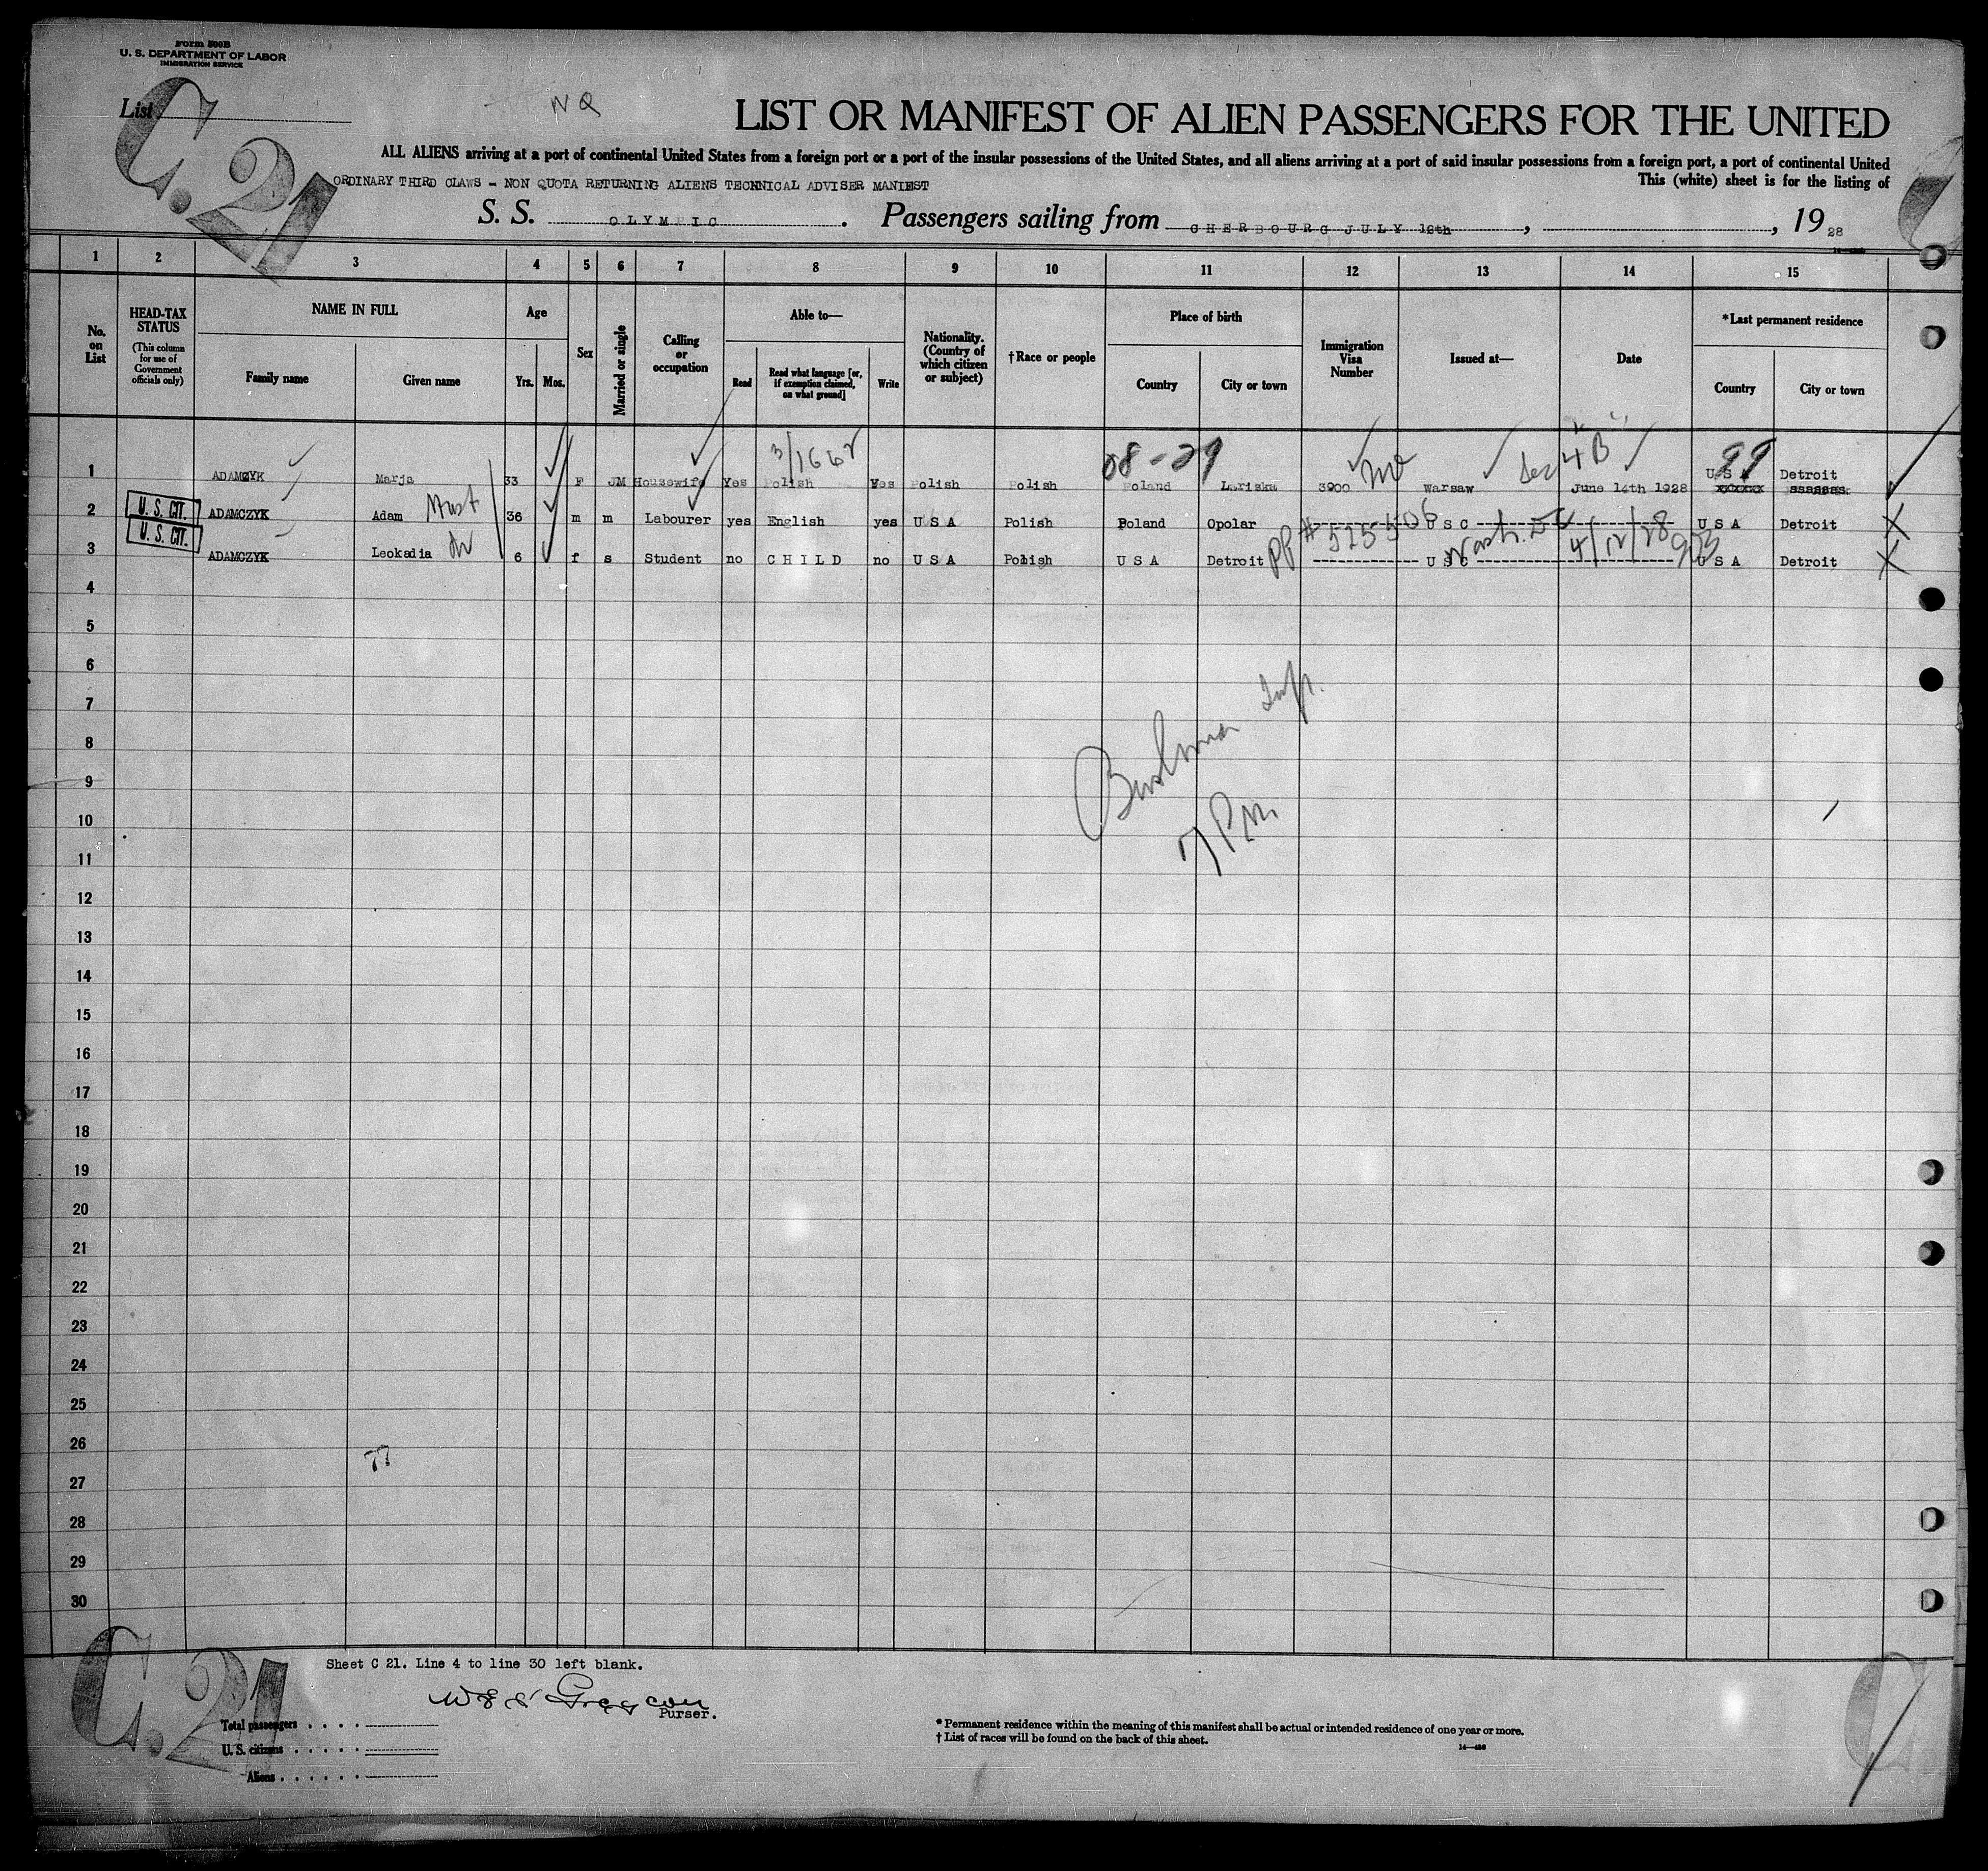 Form 500B
U. S. DEPARTMENT OF LABOR
IMMIGRATION SERVICE
C. 21
List
NQ
LIST OR MANIFEST OF ALIEN PASSENGERS FOR THE UNITED
ALL ALIENS arriving at a port of continental United States from a foreign port or a port of the insular possessions of the United States, and all aliens arriving at a port of said insular possessions from a foreign port, a port of continental United
ORDINARY THIRD CLAWS - NON QUOTA RETURNING ALIENS TECHNICAL ADVISER MANIEST
This (white) sheet is for the listing of
S. S. OLYMPIC . Passengers sailing from CHERBOURG JULY 18th , , 19 28
1 2 3 4 5 6 7 8 9 10 11 12 13 14 15
No. on List
HEAD-TAX STATUS (This column for use of Government officials only)
NAME IN FULL
Family name
Given name
Age
Yrs.
Mos.
Sex
Married or single
Calling or occupation
Able to—
Read
Read what language [or, if exemption claimed, on what ground]
Write
Nationality. (Country of which citizen or subject)
†Race or people
Place of birth
Country
City or town
Immigration Visa Number
Issued at—
Date
*Last permanent residence
Country
City or town
08-29 Sec 4 B 99
1 ADAMCZYK Marja 33 F M Housewife Yes Polish Yes Polish Polish Poland 3900 Warsaw June 14th 1928 U S A Detroit
2 U. S. CIT. ADAMCZYK Adam 36 m m Labourer yes English yes U S A Polish Poland Opolar U S C U S A Detroit
pp# Wash. DC 4/12/28
3 U. S. CIT. ADAMCZYK Leokadia 6 f s Student no CHILD no U S A Polish U S A Detroit U S C U S A Detroit
4
5
6
7
8
9
10
11
12
13
14
15
16
17
18
19
20
21
22
23
24
25
26
27
28
29
30
7 PM
Sheet C 21. Line 4 to line 30 left blank.
Purser.
C. 21
Total passengers
U. S. citizens
Aliens
* Permanent residence within the meaning of this manifest shall be actual or intended residence of one year or more.
† List of races will be found on the back of this sheet.